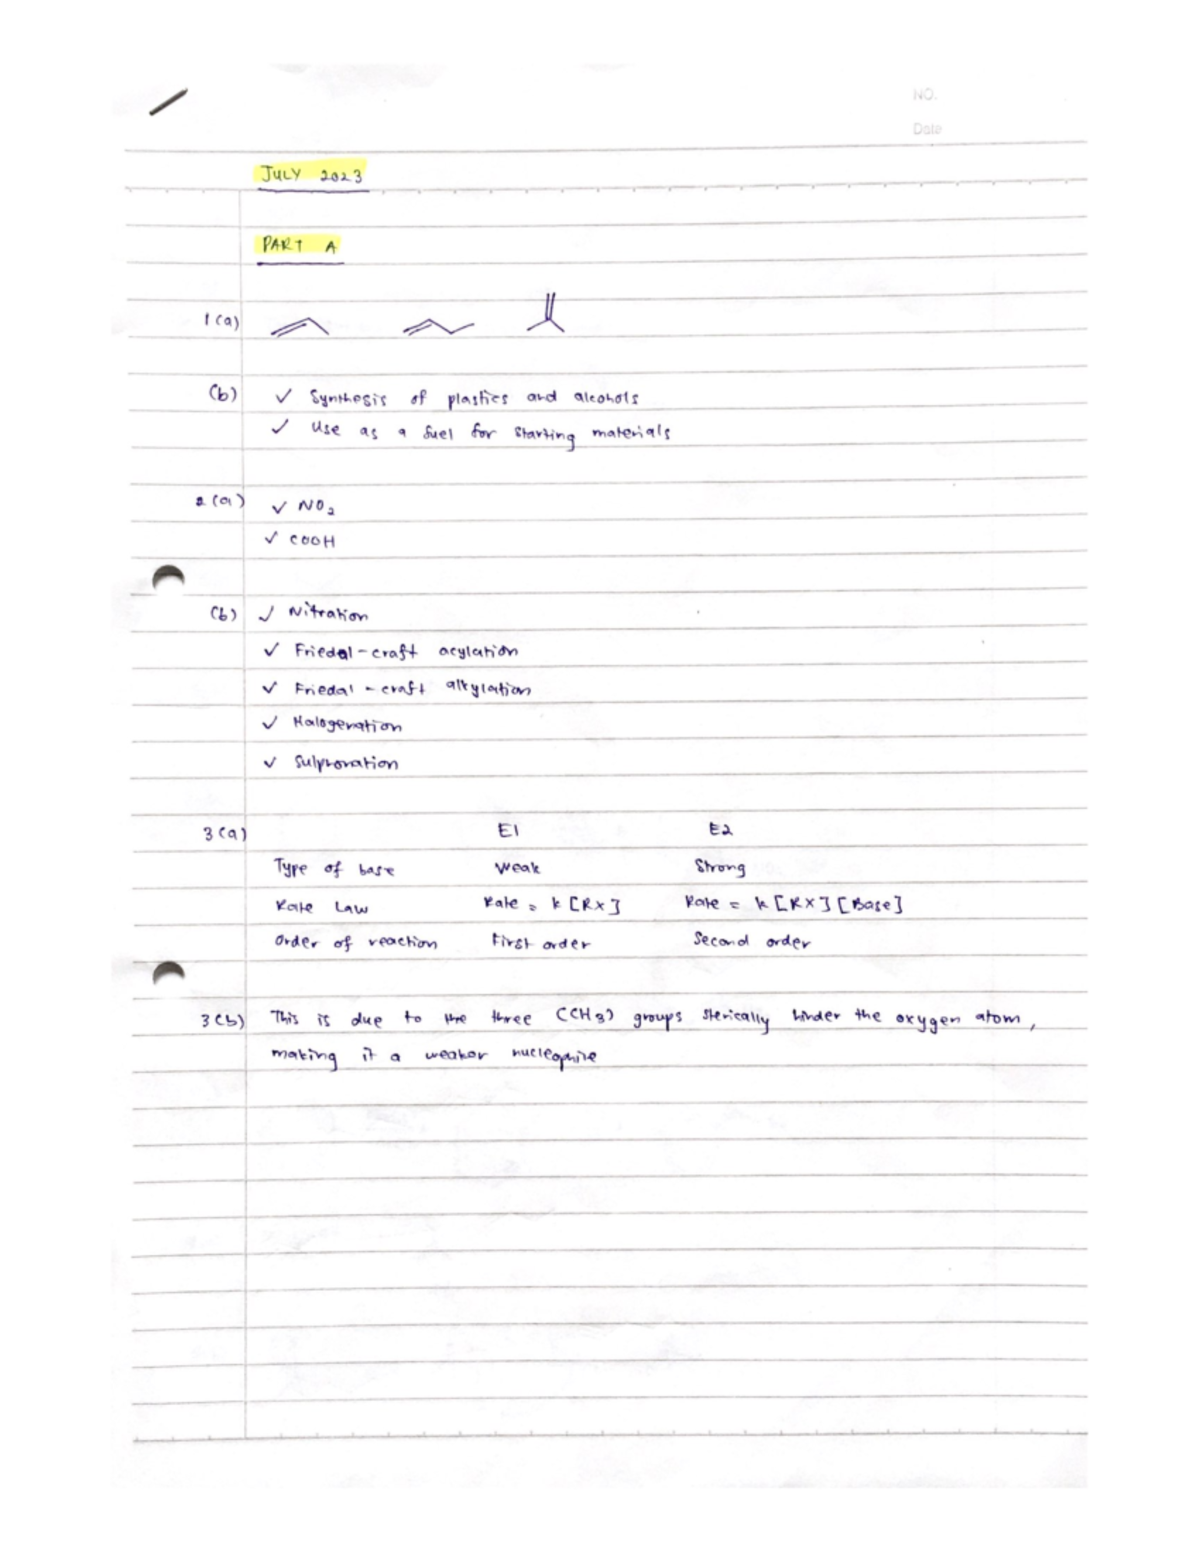 NO.
Date
JULY 2023
PART A
1(a)
(b) ✓ Synthesis of plastics and alcohols
✓ Use as a fuel for starting materials
2(a) ✓ NO₂
✓ COOH
(b) ✓ Nitration
✓ Friedal-craft acylation
✓ Friedal-craft alkylation
✓ Halogenation
✓ Sulphonation
3(a) E1 E2
Type of base Weak Strong
Rate Law Rate = k [RX] Rate = k [RX] [Base]
Order of reaction First order Second order
3(b) This is due to the three (CH3) groups sterically hinder the oxygen atom,
making it a weaker nucleophile